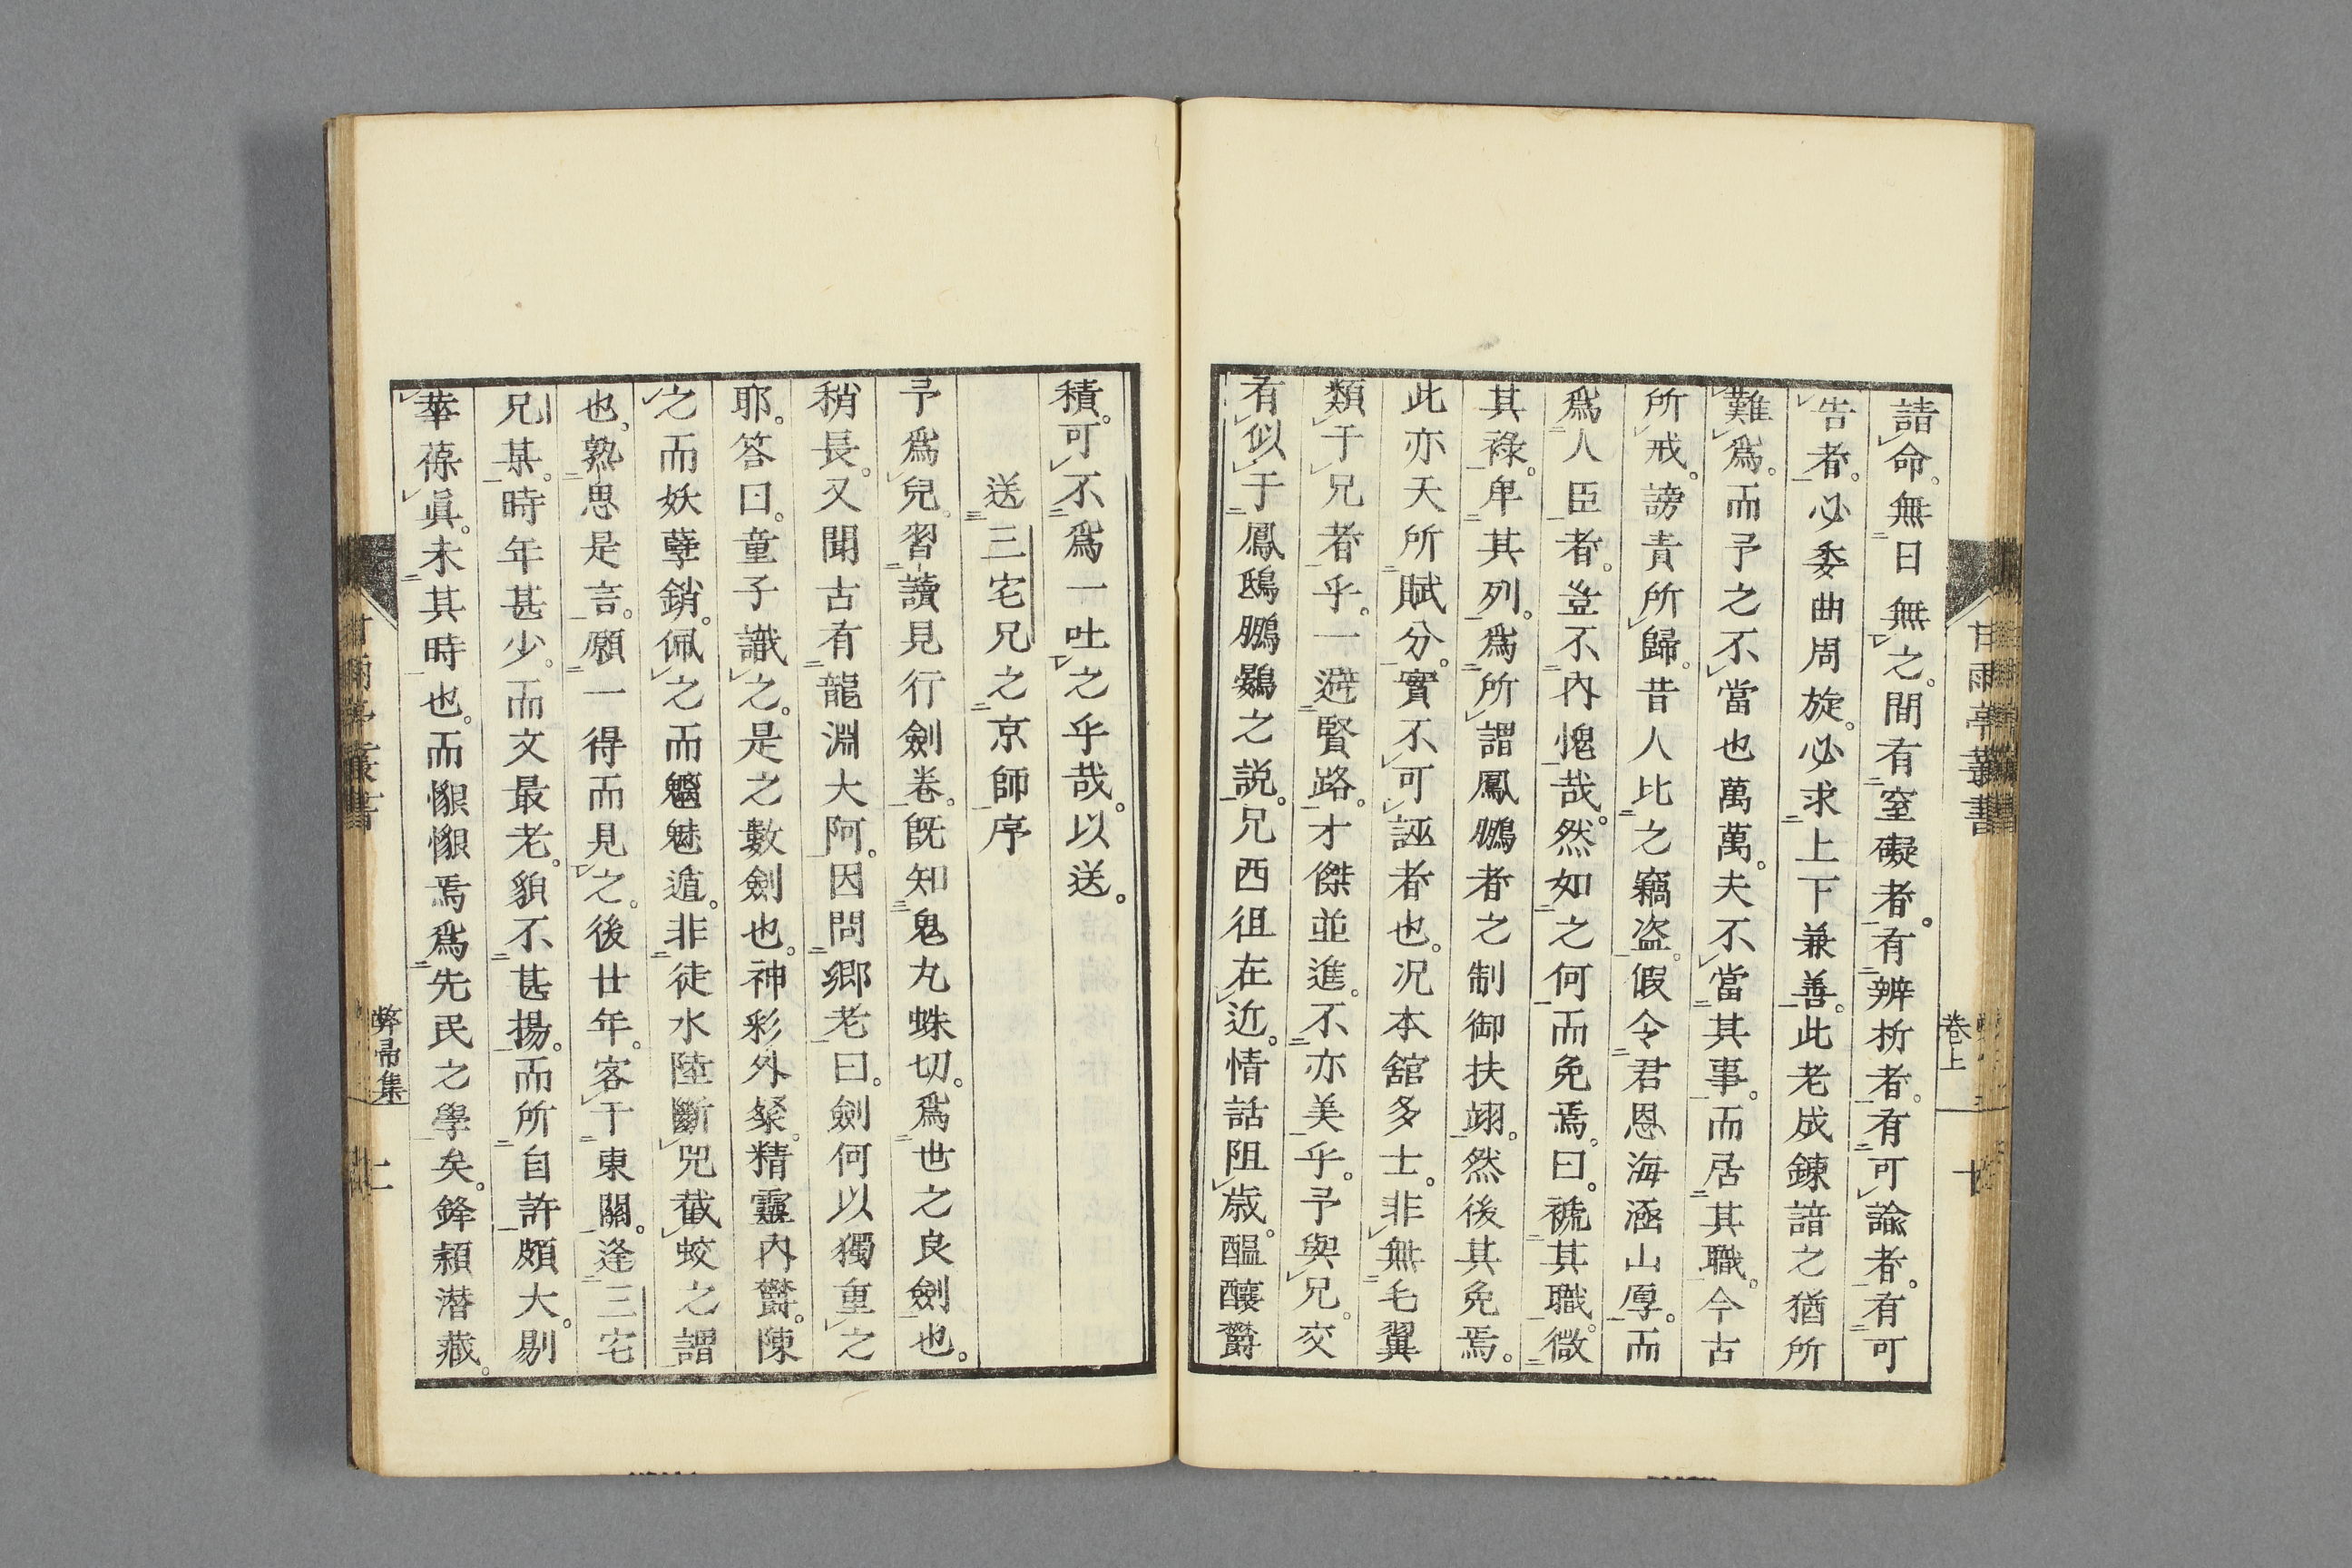 請命。無日無之。間有窒礙者。有辨析者。有可諭者。有可
告者。必委曲周旋。必求上下兼善。此老成錬諳之猶所
難爲。而予之不當也萬萬。夫不當其事。而居其職。今古
所戒。謗責所歸。昔人比之竊盗。假令君恩海涵山厚。而
爲人臣者。豈不內愧哉。然如之何而免焉。曰。褫其職。微
其祿。卑其列。爲所謂鳳鵬者之制御扶翊。然後其免焉。
此亦天所賦分。實不可誣者也。况本舘多士。非無毛翼
類于兄者乎。一避賢路。才傑並進。不亦美乎。予與兄。交
有似于鳳鴟鵬鷃之説。兄西徂在近。情話阻歳。醞釀欝
積。可不爲一吐之乎哉。以送。
送三宅兄之京師序
予爲兒。習讀見行劍卷。旣知鬼丸蛛切。爲世之良劍也。
稍長。又聞古有龍淵大阿。因問鄉老。曰。劍何以獨重之
耶。答曰。童子識之。是之數劍也。神彩外粲。精靈內欝。陳
之而妖孽銷。佩之而魑魅遁。非徒水陸斷兕截蛟之謂
也。熟思是言。願一得而見之。後廿年。客于東關。逢三宅
兄某。時年甚少。而文最老。貌不甚揚。而所自許頗大。剔
華葆眞。未其時也。而懇懇焉爲先民之學矣。鋒穎潜藏。
甘雨亭叢書
卷上
十
弊帚集